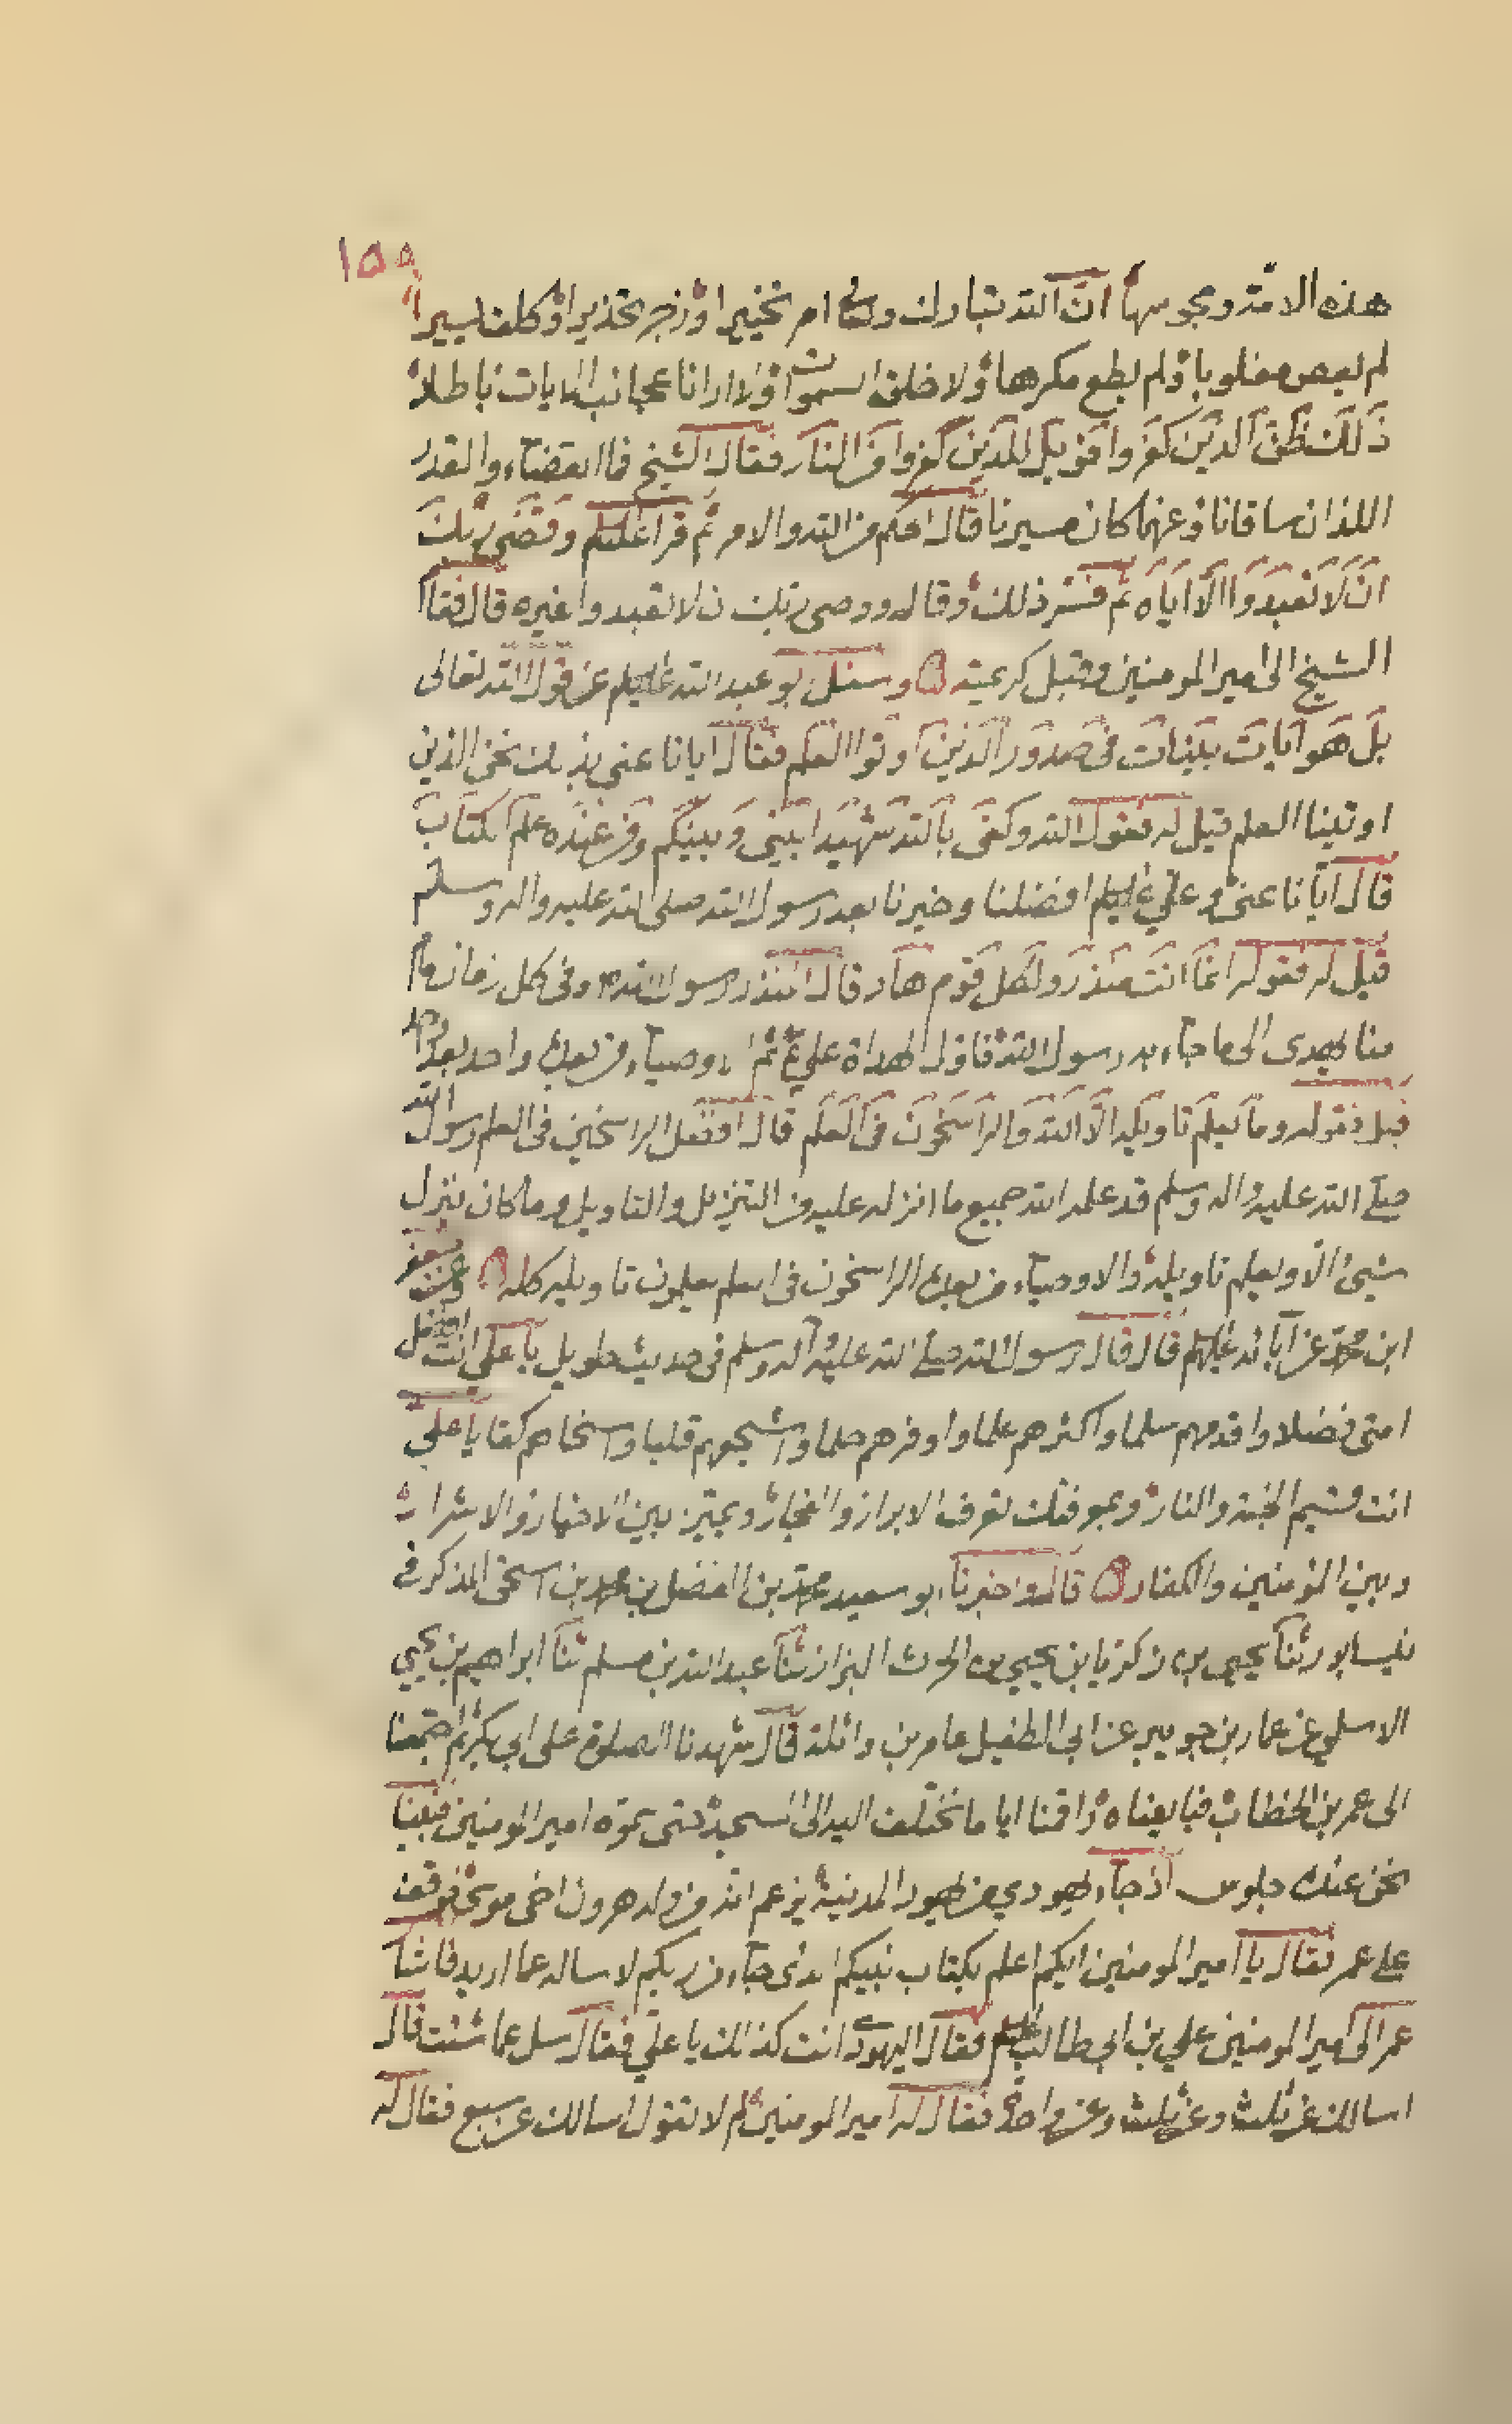 ١٥٩
هذه الامة ومجوسها ان الله تبارك وتعالى امر تخييرا وزجر تحذيرا وكلف يسيرا
لم يعص مغلوبا ولم يطع مكرها ولا خلق السموات والارض انا عجائب الايات باطلا
ذلك ظن الذين كفروا فويل للذين كفروا من النار فقال الشيخ فما القضاء والقدر
اللذان ساقانا وعنهما كان مسيرنا قال الحكم من الله والامر ثم قرأ عليكم وقضى ربك
ان لا تعبدوا الا اياه ثم فسر ذلك وقال ووصى ربك ان لا تعبدوا غيره قال فقام
الشيخ الى امير المومنين وقبل كرعيته وسئل ابو عبد الله عليه السلم عن قول الله تعالى
بل هو آيات بينات في صدور الذين اوتوا العلم فقال ايانا عنى بذلك نحن الذين
اوتينا العلم قيل له فقول الله وكفى بالله شهيدا بيني وبينكم ومن عنده علم الكتاب
قال ايانا عنى وعلي عليه السلم افضلنا وخيرنا بعد رسول الله صلى الله عليه واله وسلم
قيل له فقوله انما انت منذر ولكل قوم هاد قال المنذر رسول الله ص وفي كل زمان امام
منا يهدي الى ما جاء به رسول الله فاول الهداة علي ع ثم الاوصياء من بعده واحد بعد واحد
قيل فقوله وما يعلم تاويله الا الله والراسخون في العلم قال افضل الراسخين في العلم رسول الله
صلى الله عليه واله وسلم قد علمه الله جميع ما انزله عليه من التنزيل والتاويل وما كان ينزل
شيئ الا ويعلم تاويله والاوصياء من بعده الراسخون في العلم يعلمون تاويله كله وعن جعفر
ابن محمد عن آبائه عليهم السلم قال قال رسول الله صلى الله عليه وآله وسلم في حديث طويل يا علي انت افضل
امتي فضلا واقدمهم سلما واكثرهم علما واوفرهم حلما واشجعهم قلبا واسخاهم كفا يا علي
انت قسيم الجنة والنار وبموفتك تعرف الابرار والفجار ويميز بين الاخيار والاشرار
وبين المؤمنين والكفار قال واخبرنا ابو سعيد محمد بن الفضل بن محمد بن اسحق المذكر في
نيسابور ثنا يحيى بن زكريا بن يحيى بن الحرث البزاز ثنا عبد الله بن مسلم ثنا ابراهيم بن يحيى
الاسلمي عن عمار بن جويير عن ابي الطفيل عامر بن واثلة قال شهدنا الصلوة على ابي بكر ثم اجتمعنا
الى عمر بن الخطاب فبايعناه واقمنا اياما نختلف اليه الى المسجد حتى سموه امير المومنين فبينا
نحن عنده جلوس اذ جاء يهودي من يهود المدينة يزعم انه من ولد هرون اخي موسى فوقف
على عمر فقال يا امير المومنين ايكم اعلم بكتاب نبيكم الذي جاء من ربكم لاساله عما اريد فاشار
عمر الى امير المومنين علي بن ابي طالب عليه السلم فقال اليهودي انت كذلك يا علي فقال سل عما شئت قال
اسالك عن ثلث وعن ثلث وعن واحدة فقال له امير المومنين لم لا تقول اسالك عن سبع فقال له